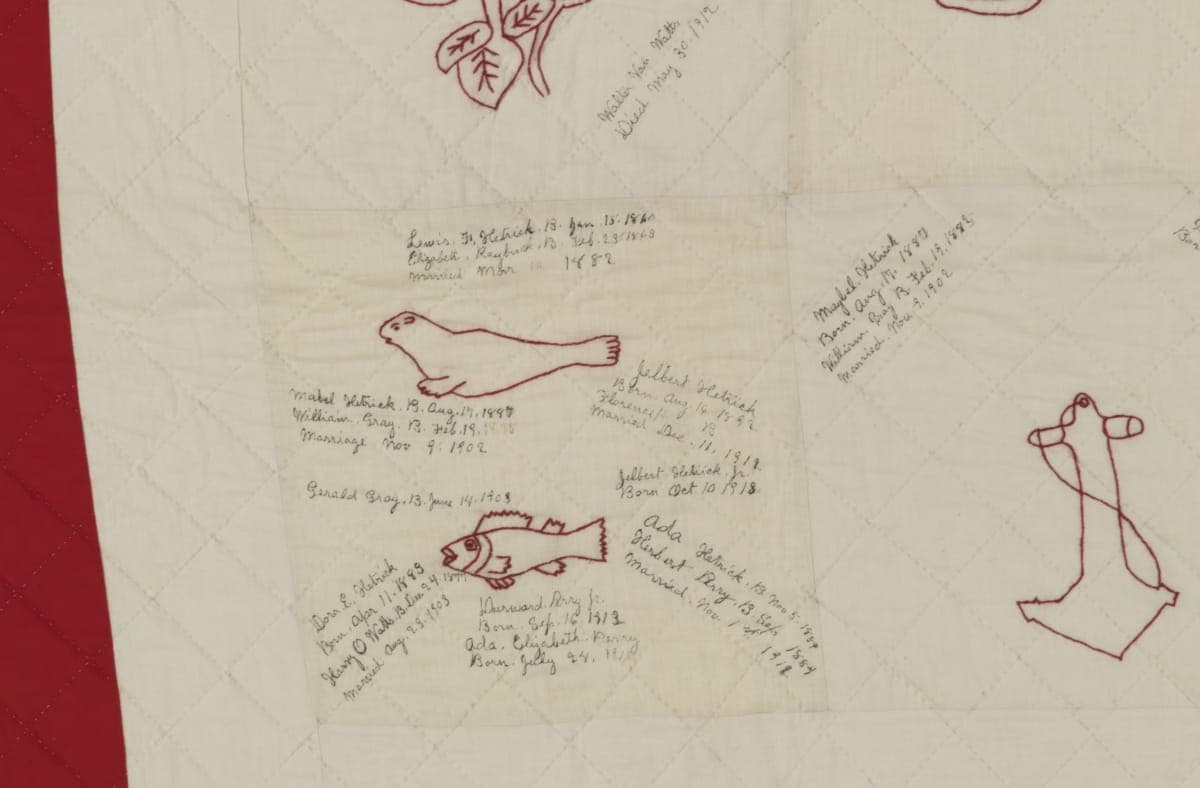 Walter Van Watts
Died May 30. 1912
Lewis. F. Hetrick. B. Jan. 15. 1860
Elizabeth. Raybuck. B. Feb. 23. 1863
Married Mar 1882
Mabel Hetrick. B. Aug. 17. 1887
William. Gray. B. Feb. 19.
Marriage Nov 9. 1902
Gerald Gray. B. June 14. 1903
Jelbert Hetrick
Born. Aug 16. 1892
Florence B
Married Dec. 11, 1912
Jelbert Hetrick. Jr
Born Oct 10 1918
Dora E. Hetrick
Born Apr 11. 1883
Harry O Watts B. Dec 24. 1877
Married Aug. 23. 1903
Durward. Perry Jr.
Born. Sep. 16 1913
Ada. Elizabeth. Perry
Born. July 24.
Ada Hetrick. B. Nov 5. 1889
Herbert Perry. B. Sep 1889
Married. Nov. 1912
Maybel. Hetrick
Born. Aug. 17. 1887
William. Gray B. Feb. 19. 1883
Married. Nov. 9. 1902